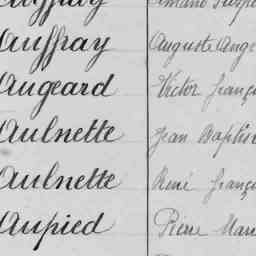 Auffray Auguste Ange
Augeard Victor Franço
Aulnette Jean Baptis
Aulnette René Franço
Aupied Pierre Mari